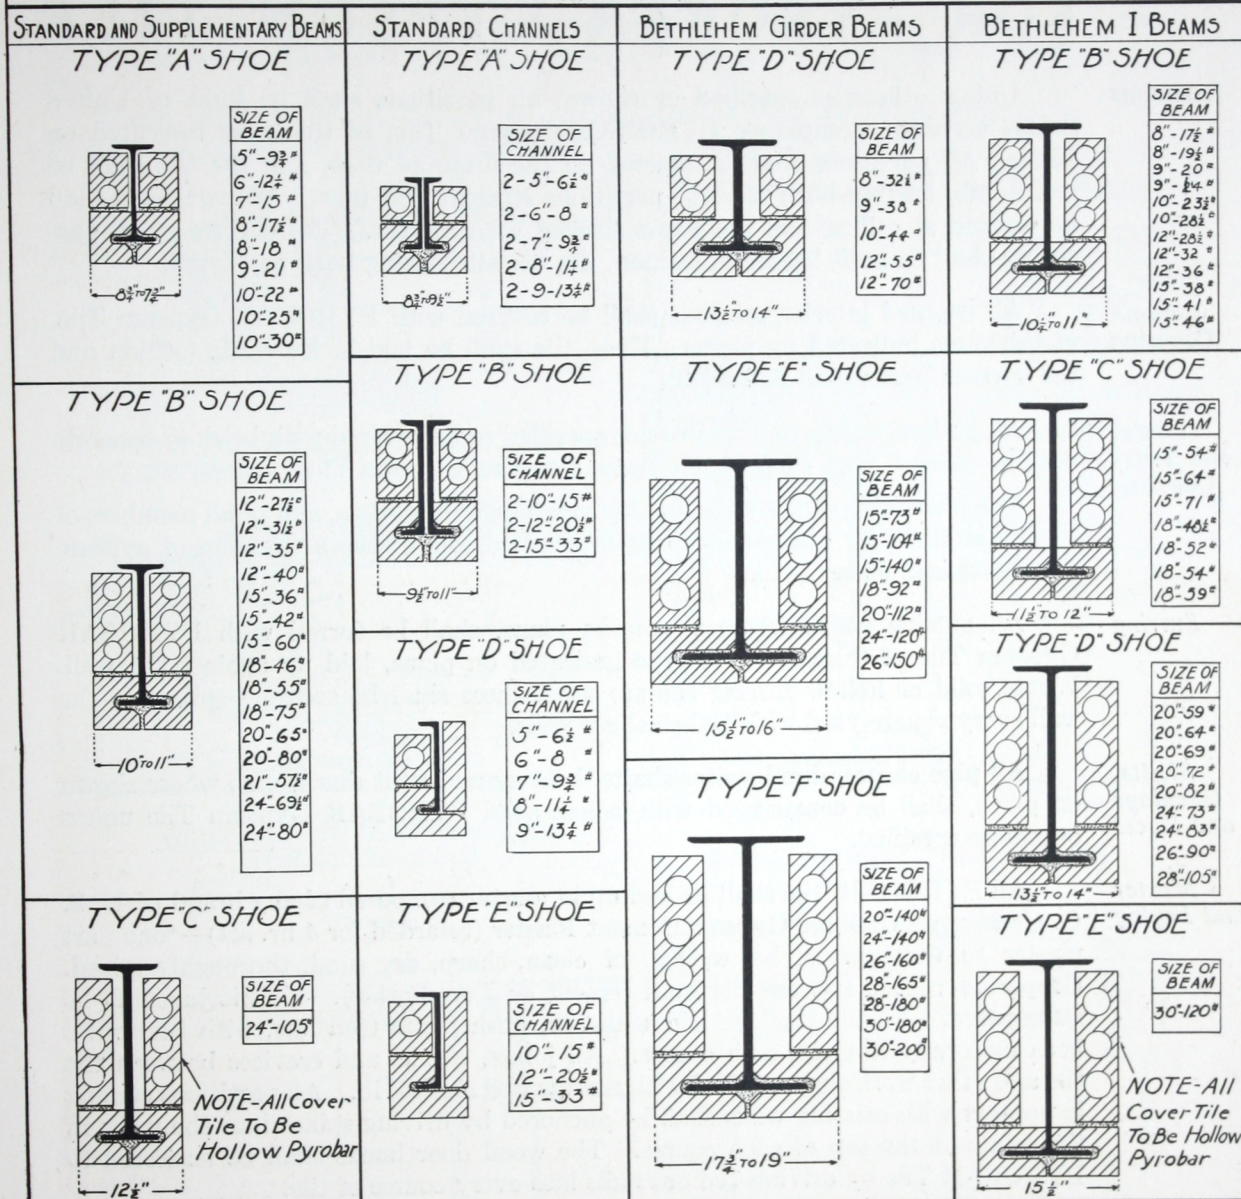 STANDARD AND SUPPLEMENTARY BEAMS
TYPE "A" SHOE
SIZE OF
BEAM
5"-9¾#
6"-12¼#
7"-15#
8"-17½#
8"-18#
9"-21#
10"-22#
10"-25#
10"-30#
8¾"TO 7½"
TYPE "B" SHOE
SIZE OF
BEAM
12"-27½#
12"-31½#
12"-35#
12"-40#
15"-36#
15"-42#
15"-60#
18"-46#
18"-55#
18"-75#
20"-65#
20"-80#
21"-57½#
24"-69½#
24"-80#
10"TO 11"
TYPE "C" SHOE
SIZE OF
BEAM
24"-105#
NOTE-All Cover
Tile To Be
Hollow Pyrobar
12½"
STANDARD CHANNELS
TYPE "A" SHOE
SIZE OF
CHANNEL
2-5"-6½#
2-6"-8#
2-7"-9¾#
2-8"-11¼#
2-9-13¼#
8¾"TO 9½"
TYPE "B" SHOE
SIZE OF
CHANNEL
2-10"-15#
2-12"-20½#
2-15"-33#
9½"TO 11"
TYPE "D" SHOE
SIZE OF
CHANNEL
5"-6½#
6"-8#
7"-9¾#
8"-11¼#
9"-13¼#
TYPE "E" SHOE
SIZE OF
CHANNEL
10"-15#
12"-20½#
15"-33#
BETHLEHEM GIRDER BEAMS
TYPE "D" SHOE
SIZE OF
BEAM
8"-32½#
9"-38#
10"-44#
12"-55#
12"-70#
13½"TO 14"
TYPE "E" SHOE
SIZE OF
BEAM
15"-73#
15"-104#
15"-140#
18"-92#
20"-112#
24"-120#
26"-150#
15½"TO 16"
TYPE F" SHOE
SIZE OF
BEAM
20"-140#
24"-140#
26"-160#
28"-165#
28"-180#
30"-180#
30"-200#
17¾"TO 19"
BETHLEHEM I BEAMS
TYPE "B" SHOE
SIZE OF
BEAM
8"-17½#
8"-19½#
9"-20#
9"-24#
10"-23½#
10"-28½#
12"-28½#
12"-32#
12"-36#
15"-38#
15"-41#
15"-46#
10½"TO 11"
TYPE "C" SHOE
SIZE OF
BEAM
15"-54#
15"-64#
15"-71#
18"-48½#
18"-52#
18"-54#
18"-59#
11½"TO 12"
TYPE "D" SHOE
SIZE OF
BEAM
20"-59#
20"-64#
20"-69#
20"-72#
20"-82#
24"-73#
24"-83#
26"-90#
28"-105#
13½"TO 14"
TYPE "E" SHOE
SIZE OF
BEAM
30"-120#
NOTE-All
Cover Tile
To Be Hollow
Pyrobar
15½"